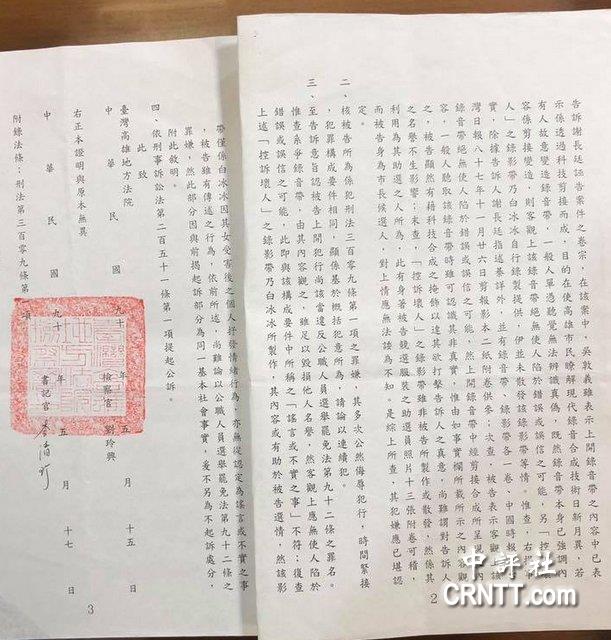 告訴謝長廷誣告案件之卷宗，在該案中，吳敦義雖表示上開錄音帶之內容中已表
示係透過科技剪接而成，目的在使高雄市民瞭解現代錄音合成技術日新月異，若
有人故意變造錄音帶，一般人單憑聽覺無法辨識真偽，既然錄音帶本身已強調內
容係剪接變造，則客觀上該錄音帶絕無使人陷於錯誤或誤信之可能，另「控訴壞
人」之錄影帶乃白冰冰自行錄製提供，伊並未散發該錄影帶等情。惟查，右揭事
實，除據告訴人謝長廷指述綦詳外，並有錄音帶、錄影帶各一卷、中國時報、台
灣日報八十七年十一月廿六日剪報影本二紙附卷供參；次查，被告表示客觀上該
錄音帶絕無使人陷於錯誤或誤信之可能，然上開錄音帶中經剪接合成所呈現之內
容，一般人聽取該錄音帶時雖可認識其非真實，惟由如事實欄所載所示之內容觀
之，被告顯然有藉科技合成之掩飾以達其欲打擊告訴人之真意，尚難謂對告訴人
之名譽不生影響；未查，「控訴壞人」之錄影帶雖非被告所製作或散發，然係其
利用為其助選之人所為，此有身著被告競選服裝之助選員照片十三張附卷可稽，
而被告身為市長候選人，對上情應無法諉為不知。是綜上所查，其犯嫌應已堪認
定。
二、核被告所為係犯刑法三百零九條第一項之罪嫌，其多次公然侮辱犯行，時間緊接
，犯罪構成要件相同，顯係基於概括犯意所為，請論以連續犯。
三、至告訴意旨認被告上開犯行尚該當違反公職人員選舉罷免法第九十二條之罪名。
惟查系爭錄音帶，由其內容觀之，雖足以毀損他人名譽，然客觀上應無使人陷於
錯誤或誤信之可能，此即與該構成要件中所稱之「謠言或不實之事」不符；復查
上述「控訴壞人」之錄影帶乃白冰冰所製作，其內容或有助於被告選情，然該影
2
帶僅係白冰冰因其女受害後之個人抒發情緒行為，亦無從認定為謠言或不實之事
，被告雖有傳述之行為，依前所述，尚難論以公職人員選舉罷免法第九十二條之
罪嫌，然此部分因與前揭起訴部分為同一基本社會事實，爰不另為不起訴處分，
附此敘明。
四、依刑事訴訟法第二百五十一條第一項提起公訴。
此致
臺灣高雄地方法院
中華民國九十年五月十五日
檢察官 劉玲興
右正本證明與原本無異
中華民國九十年五月十七日
書記官
附錄法條：刑法第三百零九條第一項
3
中評社
CRNTT.com